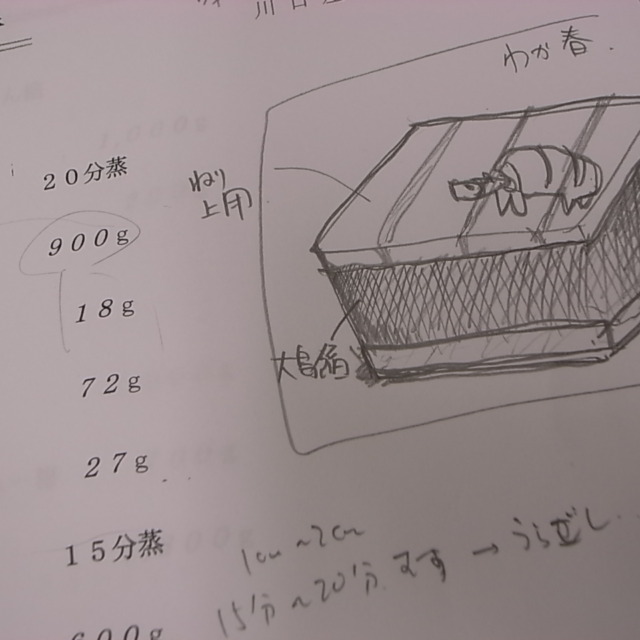 わか春.
20分蒸
ねり
上用
900g
18g
72g
27g
15分蒸
1cm~2cm
15分~20分.むす→うらごし..
600g